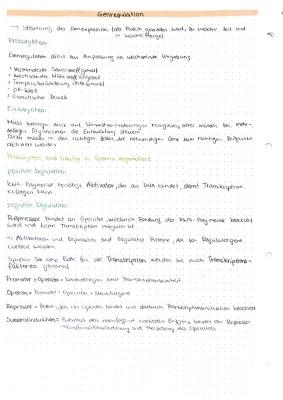 Genregulation
→ Steuerung der Genexpression (ob Protein gebildet wird), zu welcher Zeit und
in welcher Menge
Prokaryoten
Genregulation dient zur Anpassung an wechselnde Umgebung
• wechselnder Sauerstoffgehalt
• wechselnde Nährstoffumgebung
• Temperaturänderung
• pH-Wert
• Osmotischer Druck
Eukaryoten
Muss weniger stark auf Umweltveränderungen reagieren, aber müssen bei mehr-
zelligen Organismen die Entwicklung steuern
Dafür müssen in den richtigen Zellen die notwendigen Gene zum richtigen Zeitpunkt
aktiviert werden
Prokaryoten sind häufig in Operons organisiert
positive Regulation:
RNA-Polymerase benötigt Aktivator, der an DNA bindet, damit Transkription
erfolgen kann
negative Regulation:
Repressor bindet an Operator, wodurch Bindung der RNA-Polymerase blockiert
wird und keine Transkription möglich ist
→ Aktivatoren und Repressoren sind Regulator Proteine, die von Regulatorgenen
codiert werden
Spielen sie eine Rolle für die Transkription werden sie auch Transkriptions-
faktoren genannt
Promotor + Operator = Kontrollregion einer Transkriptionseinheit
Operon = Promotor + Operator + Strukturgene
Repressor = Protein, das an Operator bindet und dadurch Transkriptionsinitiation blockiert
Substratinduktion = Substrat des codierten Enzyms bindet an Repressor
→ Konformationsänderung und des Operators